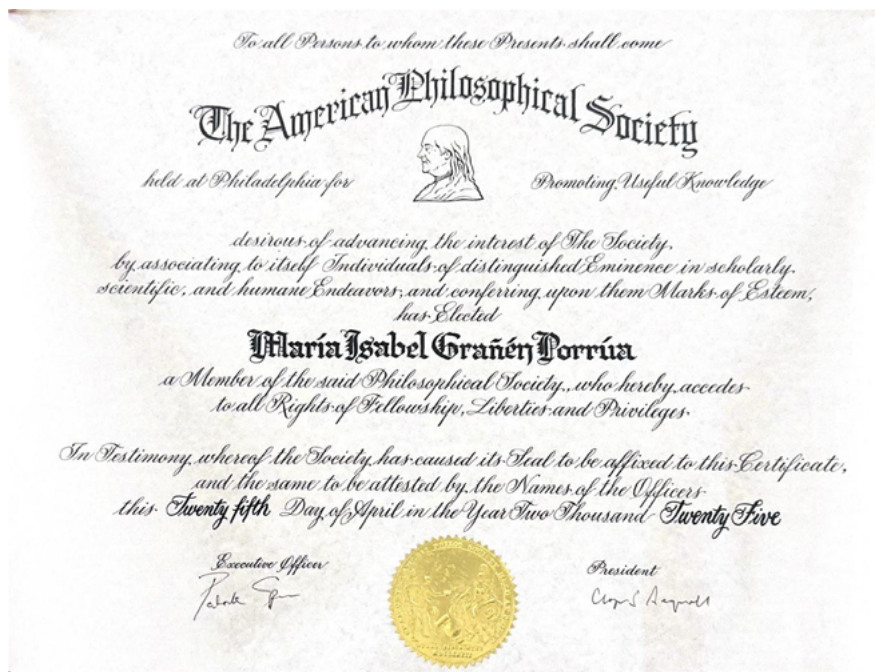 To all Persons to whom these Presents shall come
The American Philosophical Society
held at Philadelphia for Promoting Useful Knowledge
desirous of advancing the interest of The Society,
by associating to itself Individuals of distinguished Eminence in scholarly,
scientific, and humane Endeavors; and conferring upon them Marks of Esteem,
has Elected
María Isabel Grañén Porrúa
a Member of the said Philosophical Society, who hereby accedes
to all Rights of Fellowship, Liberties and Privileges
In Testimony whereof the Society has caused its Seal to be affixed to this Certificate,
and the same to be attested by the Names of the Officers
this Twenty fifth Day of April in the Year Two Thousand Twenty Five
Executive Officer
President